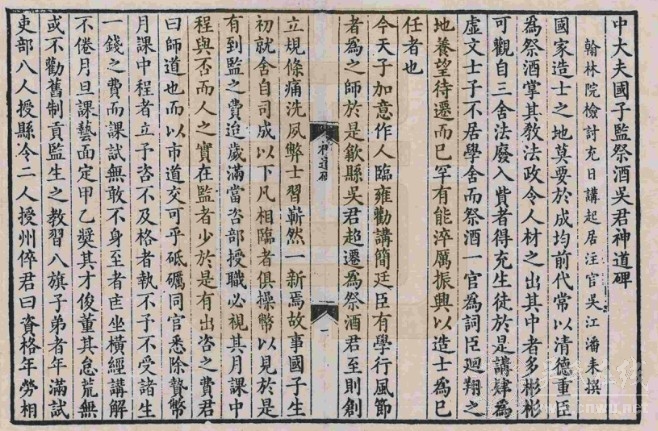 中大夫國子監祭酒吳君神道碑
翰林院檢討充日講起居注官吳江潘耒撰
國家造士之地莫要於成均前代常以清德重臣
為祭酒掌其敎法政令人材之出其中者多彬彬
可觀自三舍法廢入貲者得充生徒於是講肆為
虛文士子不居學舍而祭酒一官為詞臣迴翔之
地養望待遷而已罕有能淬厲振興以造士為已
任者也
今天子加意作人臨雍勸講簡廷臣有學行風節
者為之師於是歙縣吳君超遷為祭酒君至則創
神道碑
一
立規條痛洗夙弊士習嶄然一新焉故事國子生
初就舍自司成以下凡相臨者俱操幣以見於是
有到監之費迨歲滿當咨部授職必視其月課中
程與否而人之實在監者少於是有出咨之費君
曰師道也而以市道交可乎砥礪同官悉除贄幣
月課中程者立予咨不及格者執不予不受諸生
一錢之費而課試無敢不身至者旣坐橫經講解
不倦月旦課藝面定甲乙奬其才俊董其怠荒無
或不勸舊制貢監生之教習八旗子弟者年滿試
吏部八人授縣令二人授州倅君曰資格年勞相